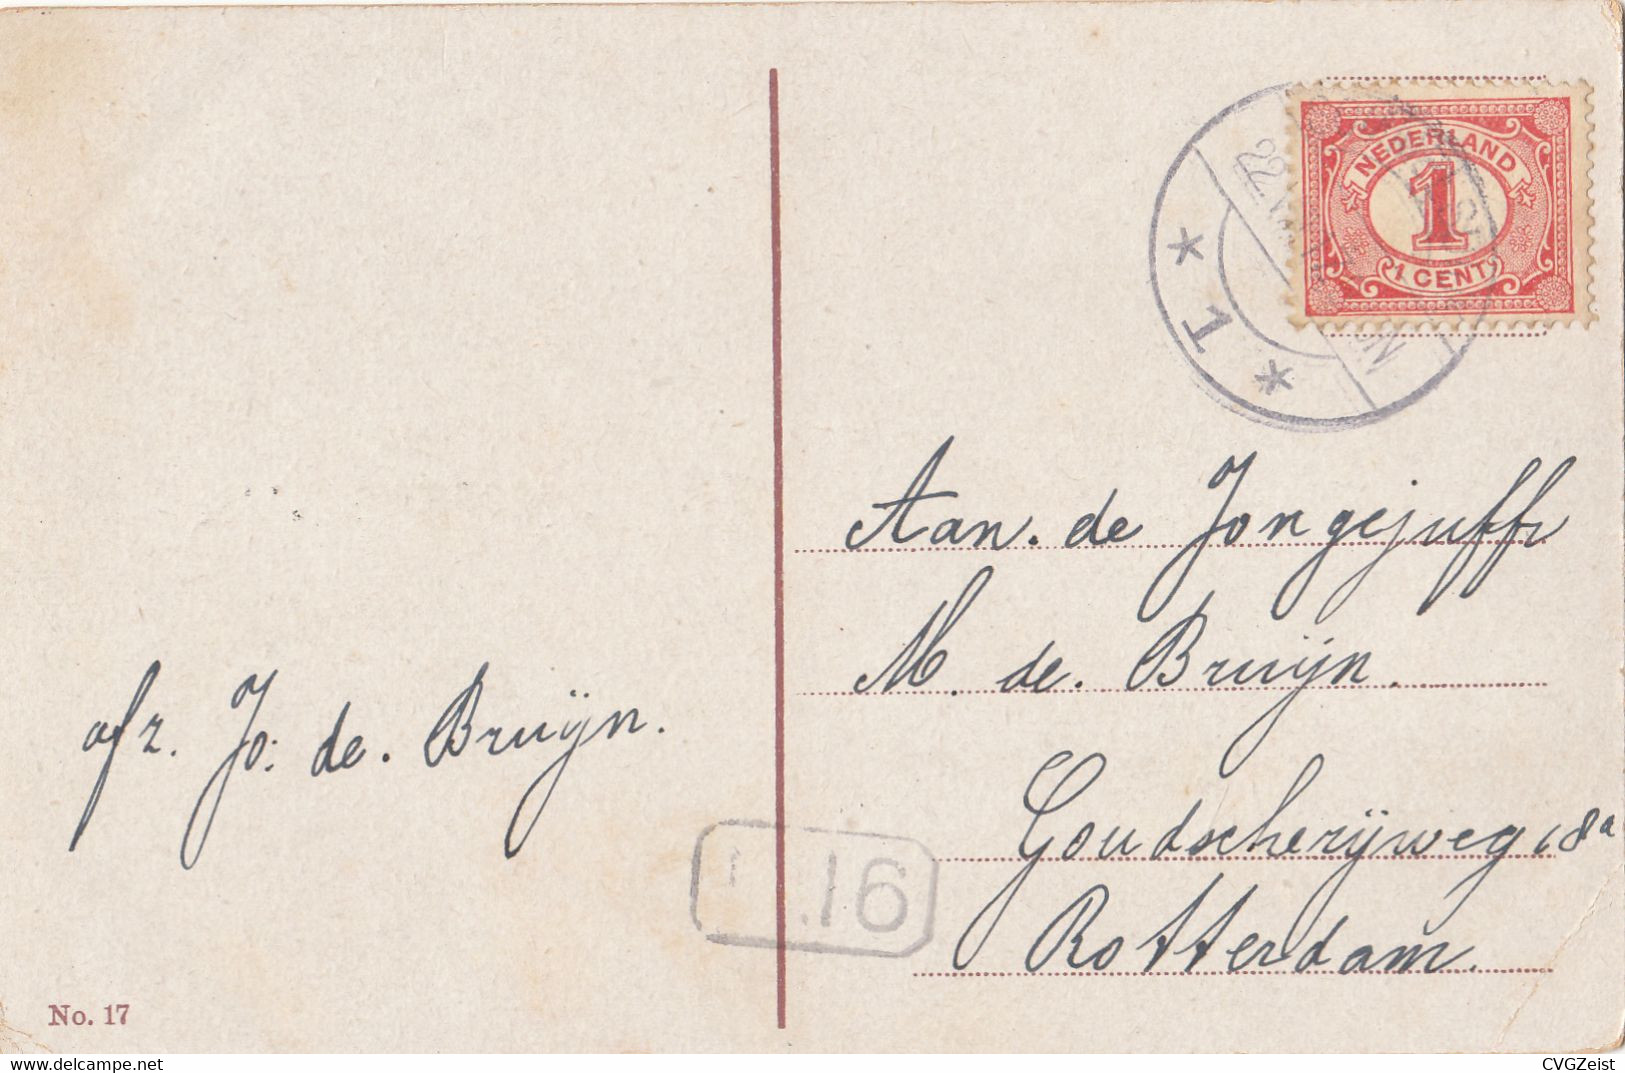 NEDERLAND
1
1 CENT
* 1 *
Aan. de Jongejuffr
M. de. Bruijn.
Goudscherijweg 68a
Rotterdam.
afz. Jo: de. Bruijn.
16
No. 17
CVGZeist